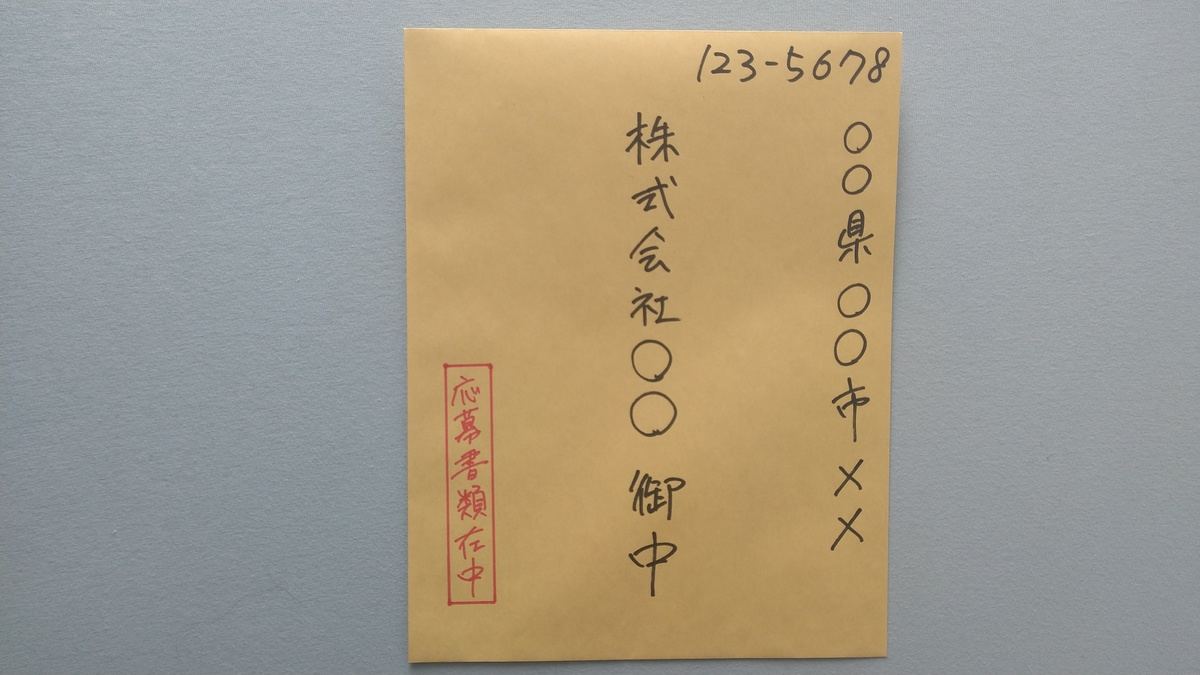 123-5678
○○県○○市××
株式会社○○ 御中
応募書類在中